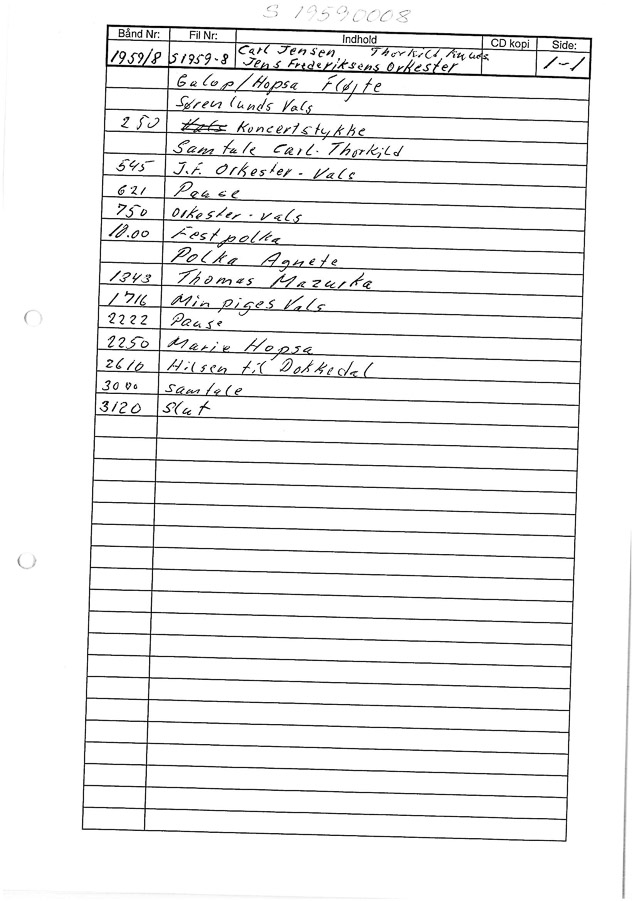 S 19590008
Bånd Nr: Fil Nr: Indhold CD kopi Side:
1959/8 S1959-8 Carl Jensen Thorkild Knudsen 1-1
Jens Frederiksens Orkester
Galop/Hopsa Fløjte
Søren Lunds Vals
250 Vals Koncertstykke
Samtale Carl. Thorkild
545 J.F. Orkester - Vals
621 Pause
750 Orkester - vals
10.00 Festpolka
Polka Agnete
1343 Thomas Mazurka
1716 Min piges Vals
2222 Pause
2250 Marie Hopsa
2610 Hilsen til Dokkedal
3000 samtale
3120 Slut